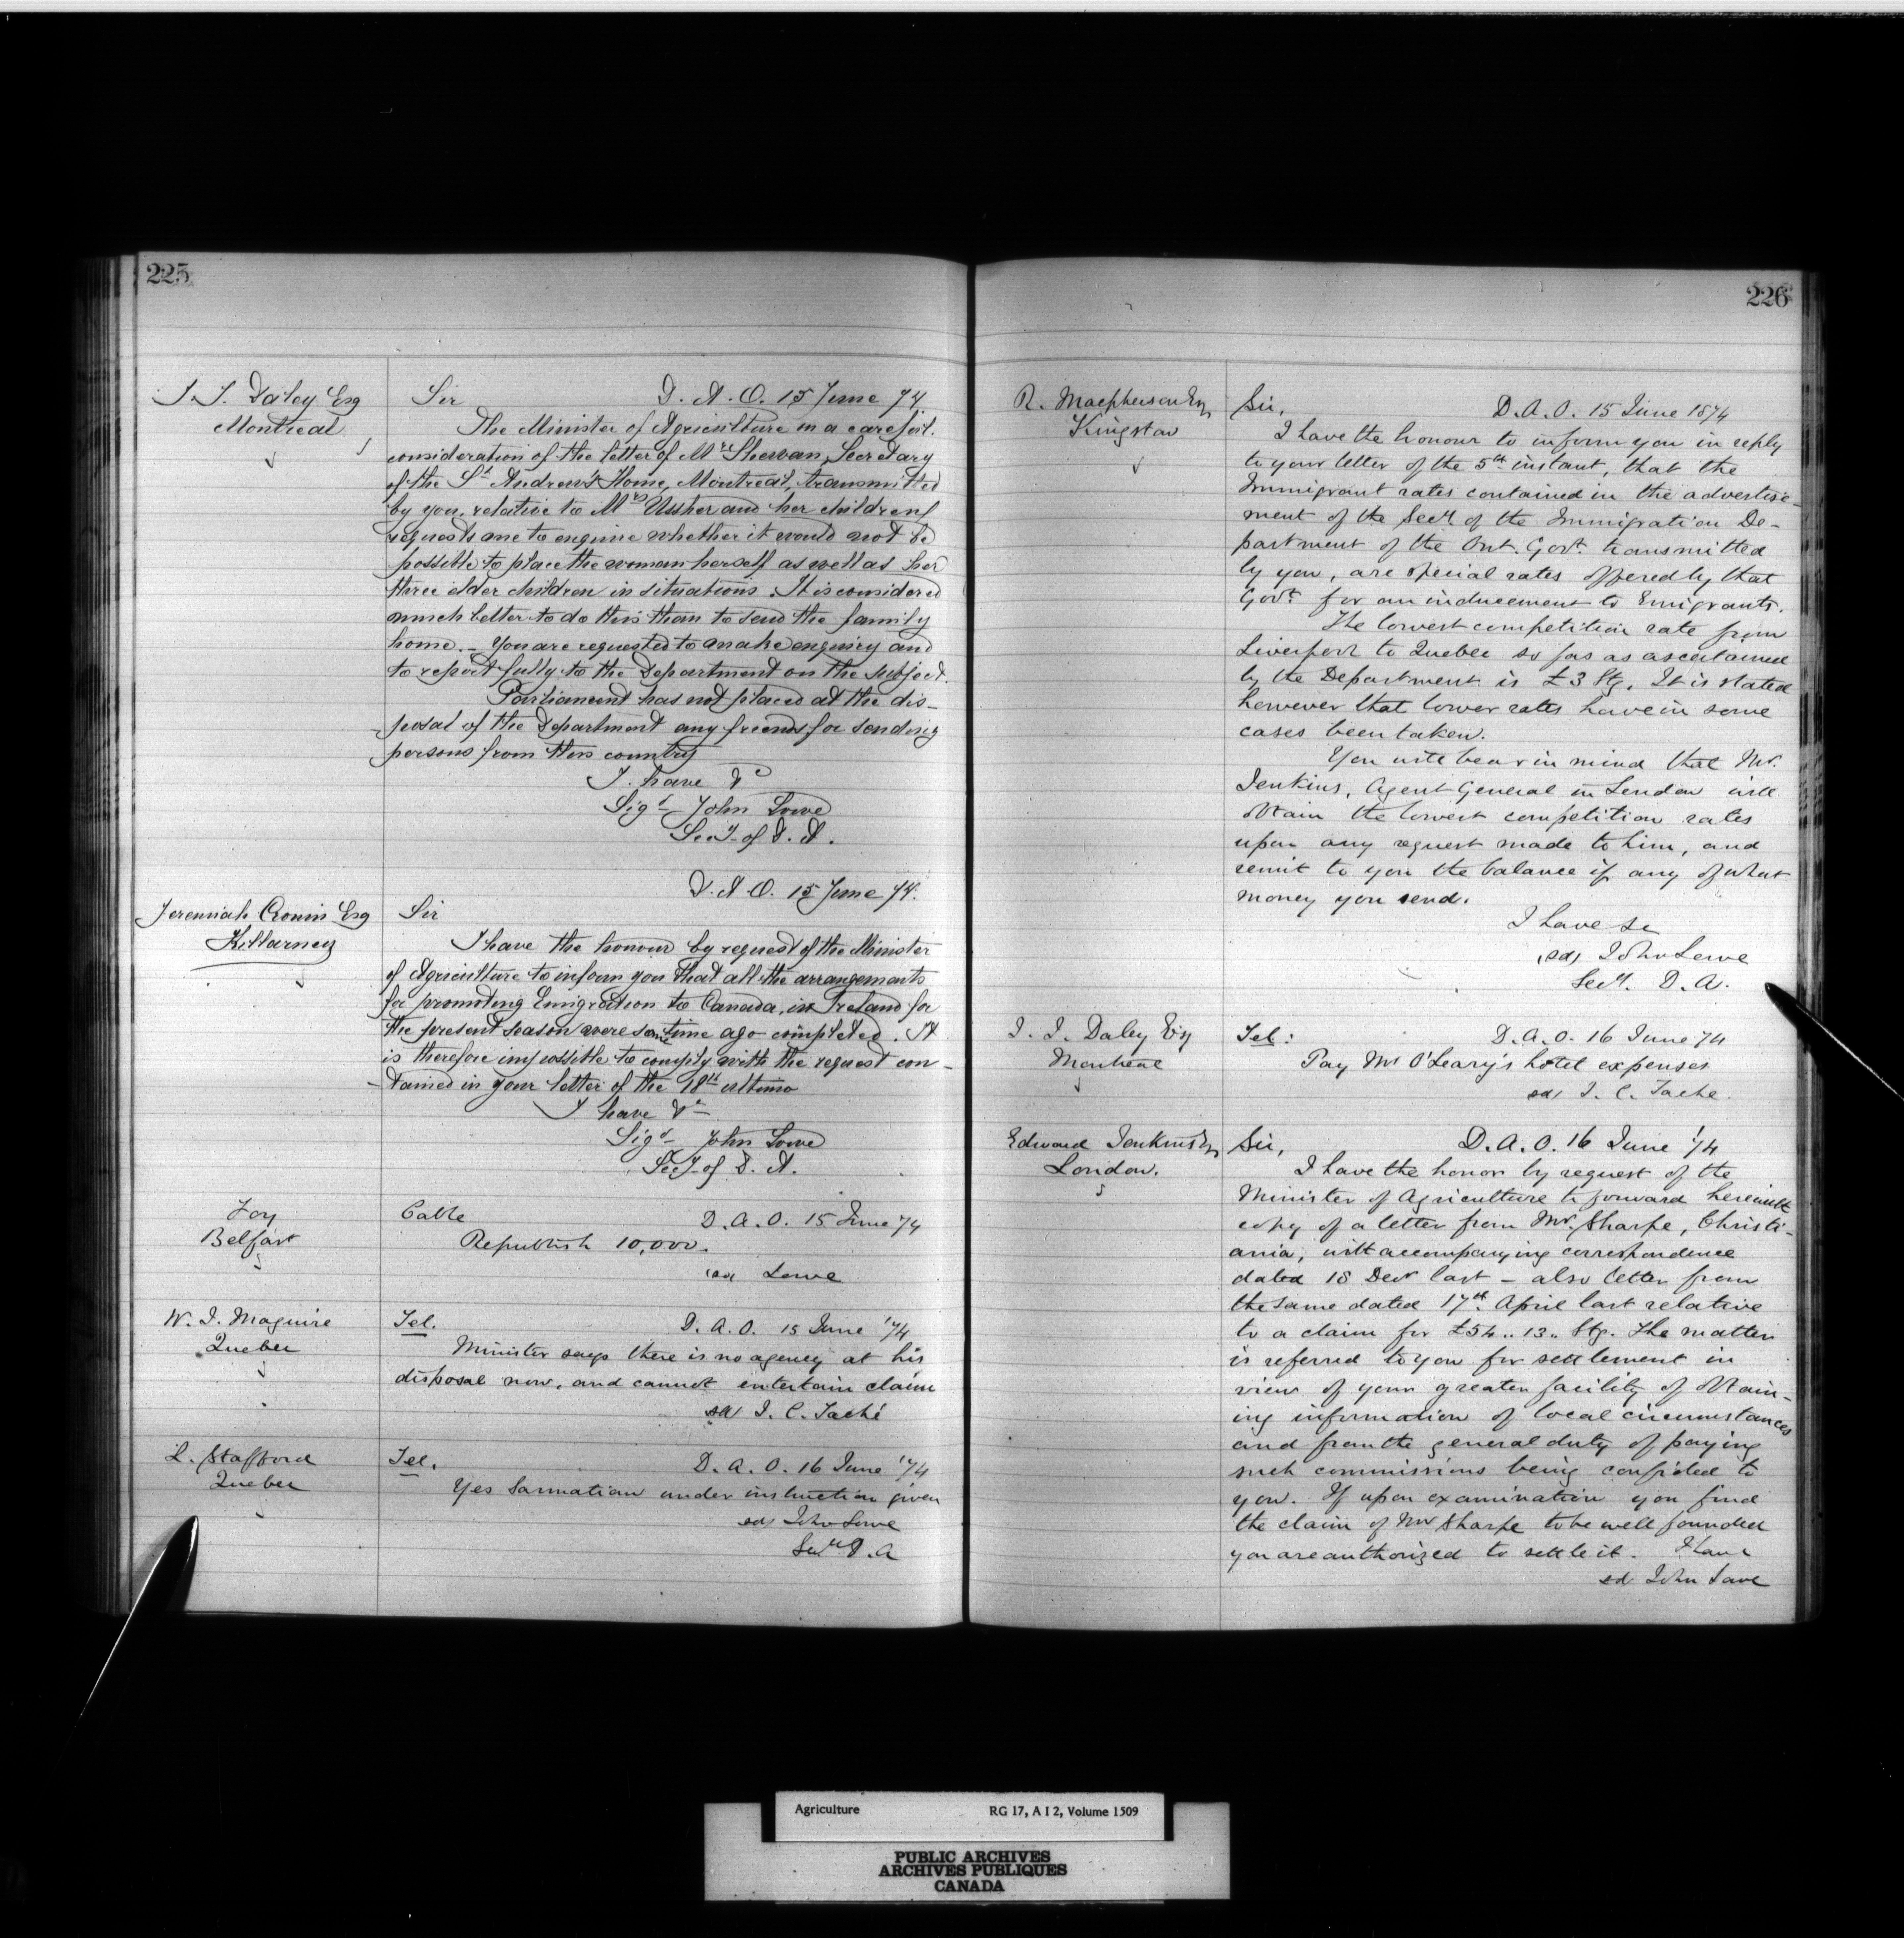 225
J. J. Daley Esq
Montreal
Sir D. A. O. 15 June 74
The Minister of Agriculture on a careful
consideration of the letter of Mr Shewan, Secretary
of the St Andrew's Home, Montreal, transmitted
by you, relative to Mrs Ussher and her children
requests me to enquire whether it would not be
possible to place the woman herself as well as her
three elder children in situations. It is considered
much better to do this than to send the family
home. – You are requested to make enquiry and
to report fully to the Department on the subject.
Parliament has not placed at the dis-
posal of the Department any funds for sending
persons from this country
I have &c
Sigd John Lowe
Secy of D. A.
D. A. O. 15 June 74.
Jeremiah Cronin Esq
Killarney
Sir
I have the honour by request of the Minister
of Agriculture to inform you that all the arrangements
for promoting Emigration to Canada, in Ireland for
the present season were some time ago completed. It
is therefore impossible to comply with the request con-
tained in your letter of the 18th ultimo
I have &c
Sigd John Lowe
Secy of D. A.
Foy
Belfast
Cable D. A. O. 15 June 74
Republish 10,000.
sd Lowe
W. J. Maguire
Quebec
Tel. D. A. O. 15 June '74
Minister says there is no agency at his
disposal now, and cannot entertain claim
sd J. C. Taché
L. Stafford
Quebec
Tel. D. A. O. 16 June '74
Yes Sarmatian under instruction given
sd John Lowe
Secy D. A
226
R. Macpherson Esq
Kingston
Sir, D. A. O. 15 June 1874
I have the honour to inform you in reply
to your letter of the 5th instant, that the
Immigrant rates contained in the advertise-
ment of the Secy of the Immigration De-
partment of the Ont. Govt. transmitted
by you, are special rates offered by that
Govt. for an inducement to Emigrants.
The lowest competition rate from
Liverpool to Quebec so far as ascertained
by the Department is £3 Stg. It is stated
however that lower rates have in some
cases been taken.
You will bear in mind that Mr.
Jenkins, Agent General in London will
obtain the lowest competition rates
upon any request made to him, and
remit to you the balance if any of what
money you send.
I have &c
sd John Lowe
Secy. D. A.
J. J. Daley Esq
Montreal
Tel: D. A. O. 16 June 74
Pay Mr O'Leary's hotel expenses
sd J. C. Tache
Edward Jenkins Esq
London.
Sir, D. A. O. 16 June '74
I have the honor by request of the
Minister of Agriculture to forward herewith
copy of a letter from Mr. Sharpe, Christi-
ania, with accompanying correspondence
dated 18 Decr last – also letter from
the same dated 17th. April last relative
to a claim for £54..13.. Stg. The matter
is referred to you for settlement in
view of your greater facility of obtain-
ing information of local circumstances
and from the general duty of paying
such commissions being confided to
you. If upon examination you find
the claim of Mr Sharpe to be well founded
you are authorized to settle it. I have
sd John Lowe
Agriculture RG 17, A I 2, Volume 1509
PUBLIC ARCHIVES
ARCHIVES PUBLIQUES
CANADA